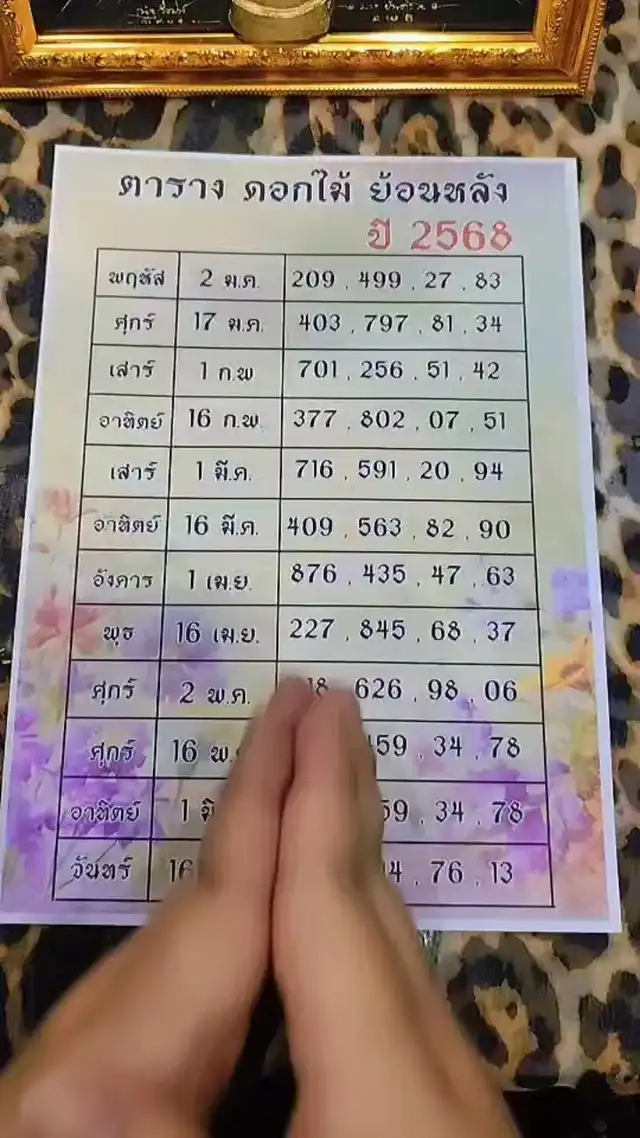 ตาราง ดอกไม้ ย้อนหลัง
ปี 2568
พฤหัส 2 ม.ค. 209 . 499 . 27 . 83
ศุกร์ 17 ม.ค. 403 . 797 . 81 . 34
เสาร์ 1 ก.พ 701 . 256 . 51 . 42
อาทิตย์ 16 ก.พ. 377 . 802 . 07 . 51
เสาร์ 1 มี.ค. 716 . 591 . 20 . 94
อาทิตย์ 16 มี.ค. 409 . 563 . 82 . 90
อังคาร 1 เม.ย. 876 . 435 . 47 . 63
พุธ 16 เม.ย. 227 . 845 . 68 . 37
ศุกร์ 2 พ.ค. 626 . 98 . 06
ศุกร์ 16 34 . 78
อาทิตย์ 1 34 . 78
วันทร์ 16 76 . 13